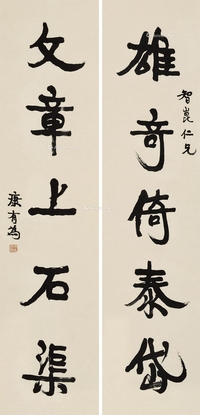 雄奇倚泰岱
智崑仁兄
文章上石渠
康有為